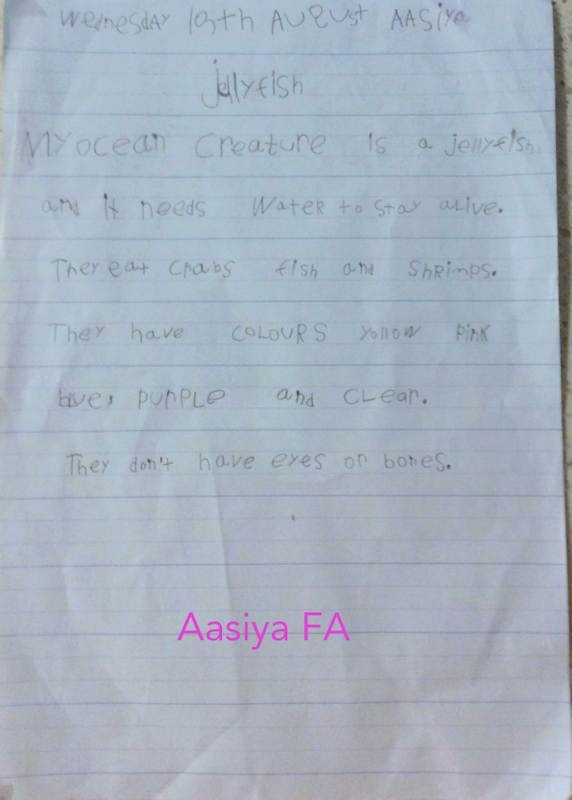 Wednesday 19th AUgUst AAsiya
jellyfish
My ocean creature is a jellyfish
and it needs water to stay alive.
They eat crabs fish and shrimps.
They have COLOURS yollow pink
blue, purple and clear.
They don't have eyes or bones.
Aasiya FA